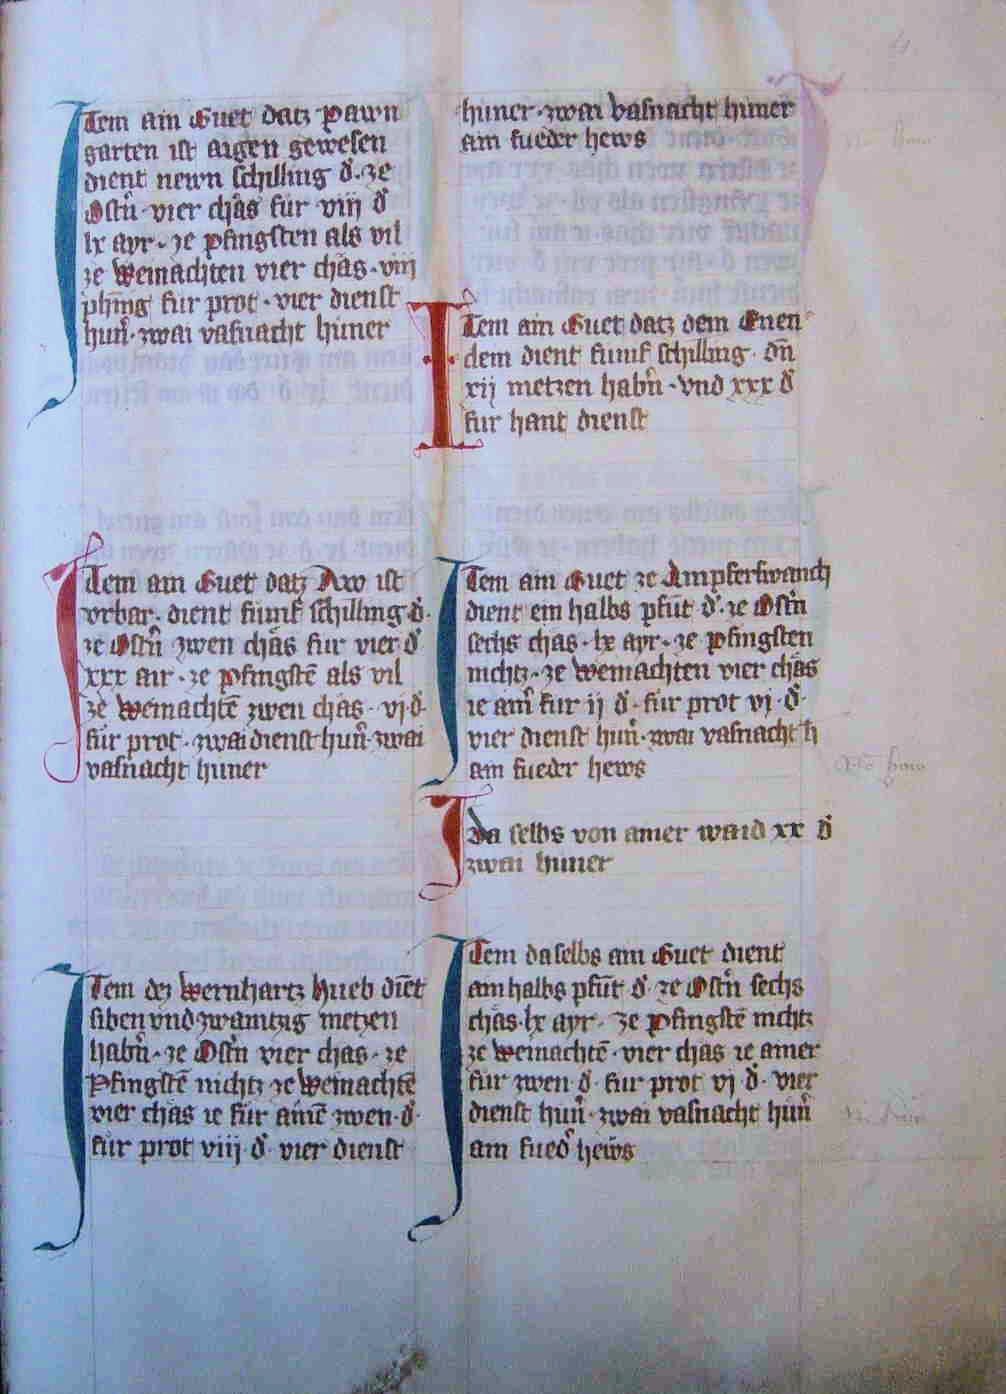 Item ain Guet datz Pawn
garten ist aigen gewesen
dient newn schilling d. ze
Ostn̄ · vier chäs fur viij d
lx ayr · ze pfingsten als vil
ze Weinachten vier chäs · viij
phīng fur prot · vier dienst
hun̄ · zwai vasnacht hüner
Item ain Guet datz Aw ist
vrbar · dient fümf schilling d ·
ze Ostn̄ zwen chäs fur vier d
xxx air · ze Pfingstē als vil
ze Weinachtē zwen chäs · vj d ·
für prot · zwai dienst hun̄ · zwai
vasnacht hüner
Item dez Wernhartz Hueb dīet
siben vnd zwaintzig metzen
habn̄ · ze Ostn̄ vier chas · ze
Pfingstē nichtz ze Weinachtē
vier chäs ie für ainē zwen · d ·
für prot viij · d · vier dienst
hüner · zwai vasnacht hüner
ain fueder hews
Item ain Guet datz dem Enen
dem dient fümf schilling · dn̄
xij metzen habn̄ · vnd xxx d
fur hant dienst
Item ain Guet ze Ampferswanch
dient ein halbs pfūt d · ze Ostn̄
sechs chäs · lx ayr · ze pfingsten
nichtz · ze Weinachten vier chäs
ie ain̄ fur ij d · für prot vj · d ·
vier dienst hün̄ · zwai vasnacht h
ain fueder hews
Jda selbs von ainer waid xx d
zwai hüner
Item daselbs ain Guet dient
ain halbs pfūt d · ze Ostn̄ sechs
chäs · lx ayr · ze Pfingstē nichtz
ze Weinachtē · vier chäs ie ainer
für zwen · d · fur prot vj · d · vier
dienst hün̄ · zwai vasnacht hün̄
ain fued hews